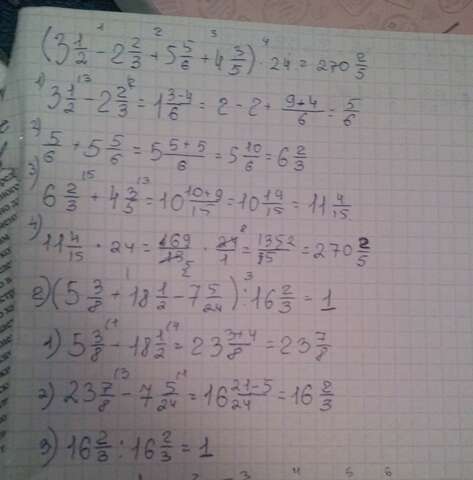 (3 1/2 - 2 2/3 + 5 5/6 + 4 3/5) · 24 = 270 2/5
1) 3 1/2 - 2 2/3 = 1 3-4/6 = 2 - 2 + 9+4/6 = 5/6
2) 5/6 + 5 5/6 = 5 5+5/6 = 5 10/6 = 6 2/3
3) 6 2/3 + 4 3/5 = 10 10+9/15 = 10 19/15 = 11 4/15
4) 11 4/15 · 24 = 169/15 · 24/1 = 1352/5 = 270 2/5
2) (5 3/8 + 18 1/2 - 7 5/24) : 16 2/3 = 1
1) 5 3/8 - 18 1/2 = 23 3+4/8 = 23 7/8
2) 23 7/8 - 7 5/24 = 16 21-5/24 = 16 2/3
3) 16 2/3 : 16 2/3 = 1